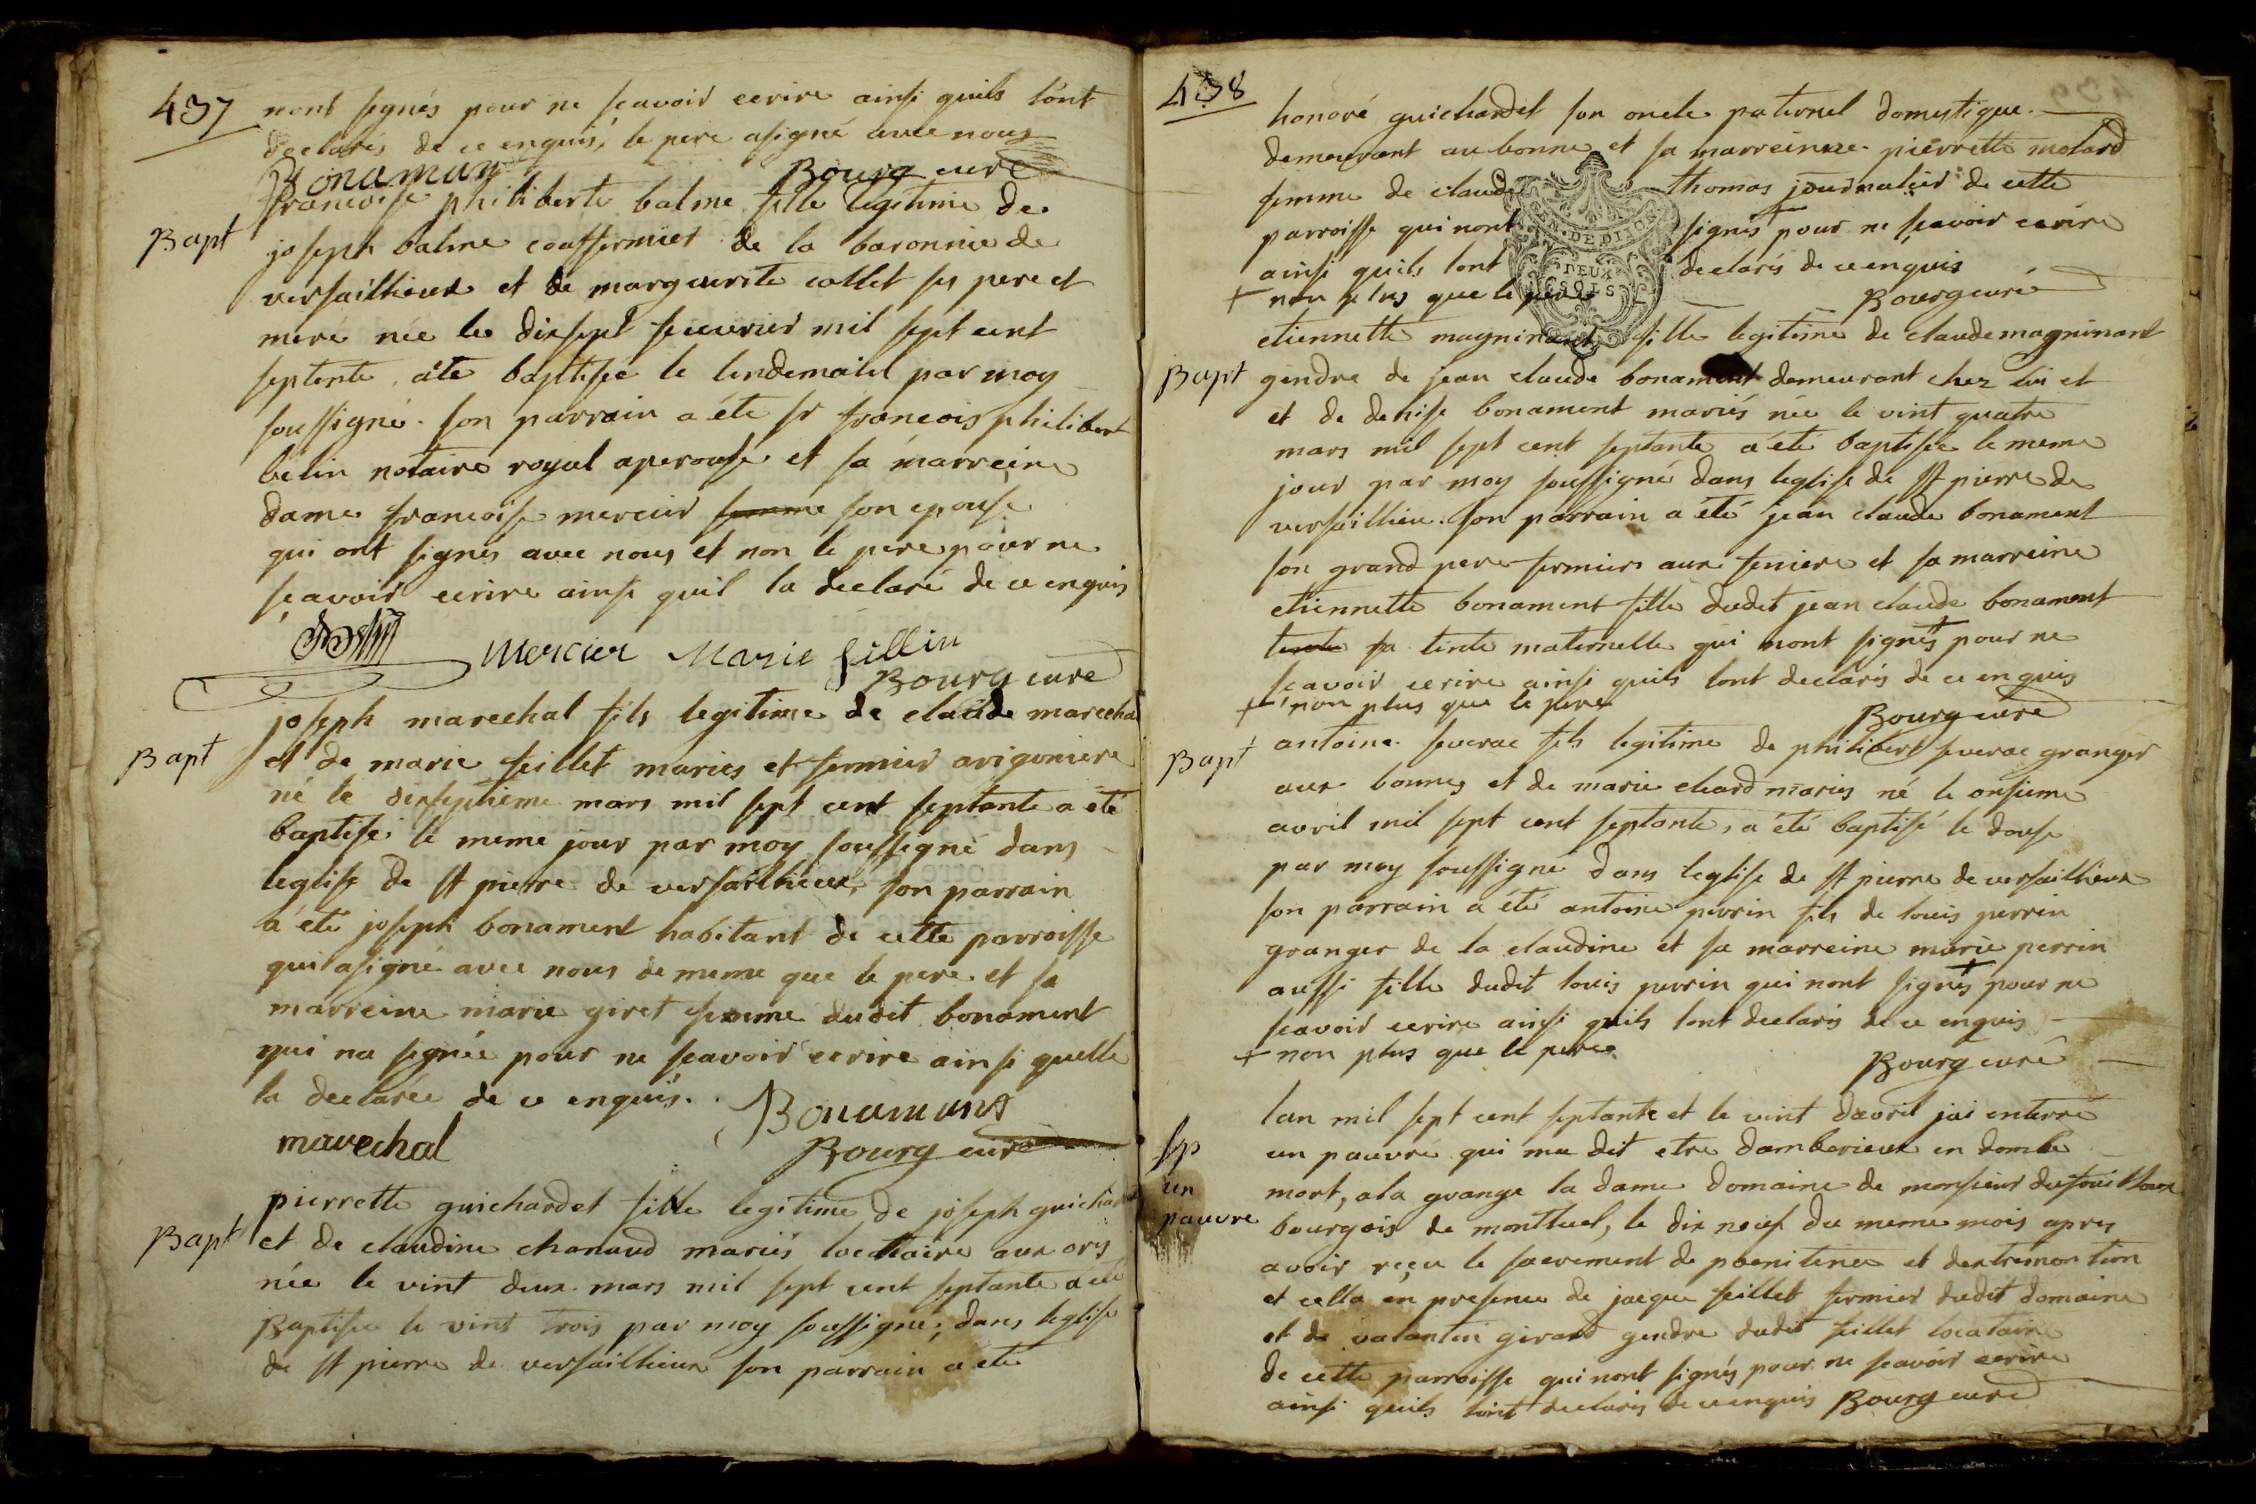 437
nont signés pour ne scavoir ecrire ainsi quils lont
declarés de ce enquis, le pere asigné avec nous
Bonamant Bourg curé
Bapt
francoise philiberte balme fille legitime de
joseph balme cosffermier de la baronnie de
versaillieux et de marguerite collet ses pere et
mere née le dixsept feuvrier mil sept cent
septente, a été baptisée le lendemain par moy
soussigné. son parrain a été sr francois philibert
belin notaire royal aperouse et sa marreine
dame francoise mercier femme son epouse
qui ont signés avec nous et non le pere pour ne
scavoir ecrire ainsi quil la declaré de ce enquis
Mercier Marie
Bourg curé
Bapt
joseph marechal fils legitime de claude marechal
et de marie feillet mariés et fermier arigoniere
né le dixseptieme mars mil sept cent septante a été
baptisé le meme jour par moy soussigné dans
leglise de st pierre de versaillieux, son parrain
a été joseph bonament habitant de cette parroisse
qui asigné avec nous de meme que le pere et sa
marreine marie giret femme dudit bonament
qui na signée pour ne scavoir ecrire ainsi quelle
la declarée de ce enquis.
Bonamant
marechal Bourg curé
Bapt
pierrette guichardet fille legitime de joseph guichardet
et de claudine chanaud mariés locataire aux orys
née le vint deux mars mil sept cent septante a été
Baptisée le vint trois par moy soussigné, dans leglise
de st pierre de versaillieux son parrain a été
438
honoré guichardet son oncle paternel domestique
demeurant au bonne et sa marreinne pierrette molard
femme de claude thomas journalier de cette
parroisse qui nont signés + pour ne scavoir ecrire
ainsi quils lont declarés de ce enquis
+ non plus que le pere Bourg curé
GEN. DE DIJON
DEUX
SOLS
Bapt
etiennette magninant fille legitime de claude magninant
gendre de jean claude bonament demeurant chez lui et
et de denise bonament mariés née le vint quatre
mars mil sept cent septante a été baptisée le meme
jour par moy soussigné dans leglise de st pierre de
versaillieu. son parrain a été jean claude bonament
son grand pere fermier aux feniere et sa marreine
etiennette bonament fille dudit jean claude bonament
tente sa tente maternelle qui nont signés + pour ne
scavoir ecrire ainsi quils lont declarés de ce enquis
+ non plus que le pere Bourg curé
Bapt
antoine feverae fils legitime de philibert feverae granger
aux bonnes et de marie chard mariés né le onsieme
avril mil sept cent septante, a été baptisé le douse
par moy soussigné dans leglise de st pierre de versaillieux
son parrain a été antoine perrin fils de louis perrin
granger de la claudine et sa marreine marie perrin
aussi fille dudit louis perrin qui nont signés + pour ne
scavoir ecrire ainsi quils lont declarés de ce enquis
+ non plus que le pere Bourg curé
Sp
un
pauvre
lan mil sept cent septante et le vint davril jai enterré
un pauvre qui ma dit etre damberieux en dombe
mort, a la grange la dame domaine de monsieur
bourgois de montluel, le dix neuf du meme mois apres
avoir reçu le sacrement de poenitence et dextremontion
et cella en presence de jacque feillet fermier dudit domaine
et de valantin girard gendre dudit feillet locataire
de cette parroisse qui nont signés pour ne scavoir ecrire
ainsi quils lont declarés de ce enquis Bourg curé